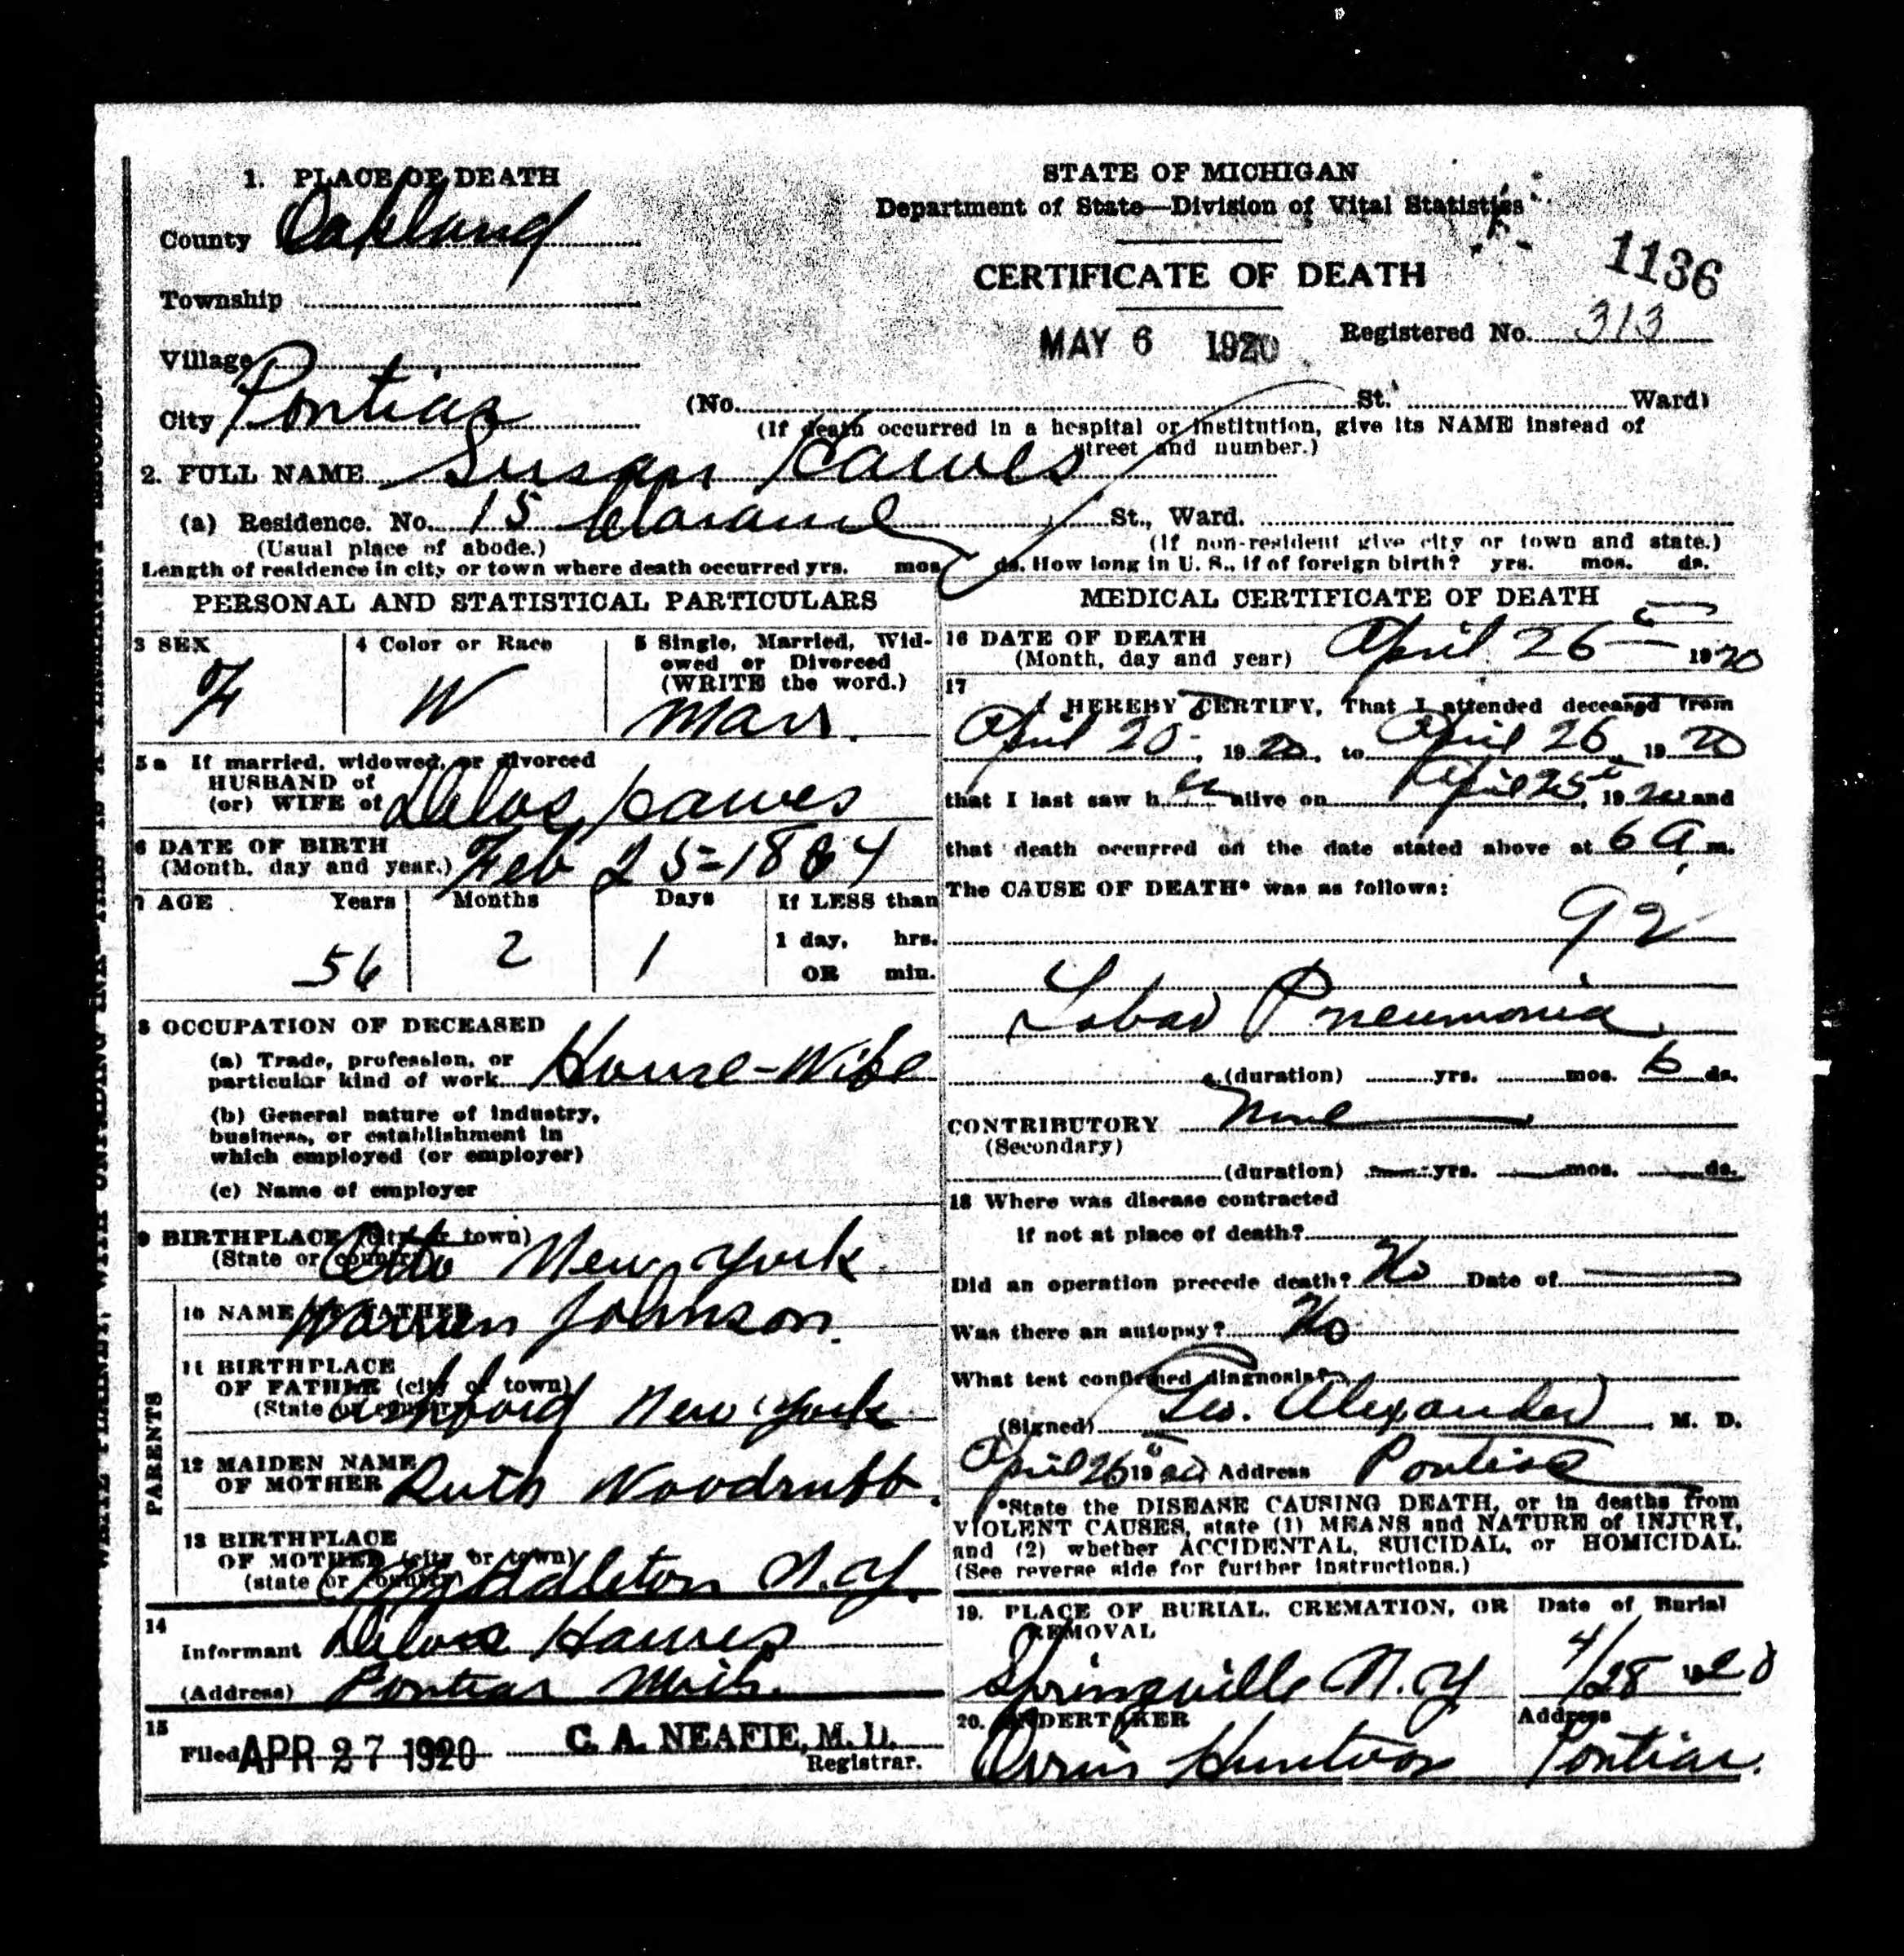 1. PLACE OF DEATH
County Oakland
Township
Village
City Pontiac
STATE OF MICHIGAN
Department of State—Division of Vital Statistics
CERTIFICATE OF DEATH
1136
MAY 6 1920
Registered No. 313
(No. St. Ward)
(If death occurred in a hospital or institution, give its NAME instead of
street and number.)
2. FULL NAME Susan Hawes
(a) Residence. No. 15 St., Ward.
(Usual place of abode.)
(If non-resident give city or town and state.)
Length of residence in city or town where death occurred yrs. mos. ds. How long in U. S., if of foreign birth? yrs. mos. ds.
PERSONAL AND STATISTICAL PARTICULARS
3 SEX
F
4 Color or Race
W
5 Single, Married, Wid-
owed or Divorced
(WRITE the word.)
Marr.
5a If married, widowed, or divorced
HUSBAND of
(or) WIFE of Delos Hawes
6 DATE OF BIRTH
(Month, day and year.) Feb 25-1864
7 AGE Years Months Days If LESS than
1 day, hrs.
OR min.
56 2 1
8 OCCUPATION OF DECEASED
(a) Trade, profession, or
particular kind of work House-Wife
(b) General nature of industry,
business, or establishment in
which employed (or employer)
(c) Name of employer
9 BIRTHPLACE (city or town)
(State or country) Otto New York
PARENTS
10 NAME OF FATHER
Warren Johnson.
11 BIRTHPLACE
OF FATHER (city or town)
(State or country) Ashford New York
12 MAIDEN NAME
OF MOTHER Ruth Woodruff.
13 BIRTHPLACE
OF MOTHER (city or town)
(state or country) Middleton N.Y.
14
Informant Delos Hawes
(Address) Pontiac Mich.
15
Filed APR 27 1920 C. A. NEAFIE, M. D.
Registrar.
MEDICAL CERTIFICATE OF DEATH
16 DATE OF DEATH
(Month, day and year) April 26 1920
17
I HEREBY CERTIFY, That I attended deceased from
April 20, 1920, to April 26, 1920
that I last saw her alive on April 25, 1920 and
that death occurred on the date stated above at 6 A. m.
The CAUSE OF DEATH* was as follows:
92
Lobar Pneumonia
(duration) yrs. mos. 6 ds.
CONTRIBUTORY None
(Secondary)
(duration) yrs. mos. ds.
18 Where was disease contracted
if not at place of death?
Did an operation precede death? No Date of
Was there an autopsy? No
What test confirmed diagnosis?
(Signed) Geo. Alexander, M. D.
April 26 1920 Address Pontiac
*State the DISEASE CAUSING DEATH, or in deaths from
VIOLENT CAUSES, state (1) MEANS and NATURE of INJURY,
and (2) whether ACCIDENTAL, SUICIDAL, or HOMICIDAL.
(See reverse side for further instructions.)
19. PLACE OF BURIAL, CREMATION, OR
REMOVAL
Springville N.Y
Date of Burial
4/28 1920
20. UNDERTAKER
Address
Pontiac.